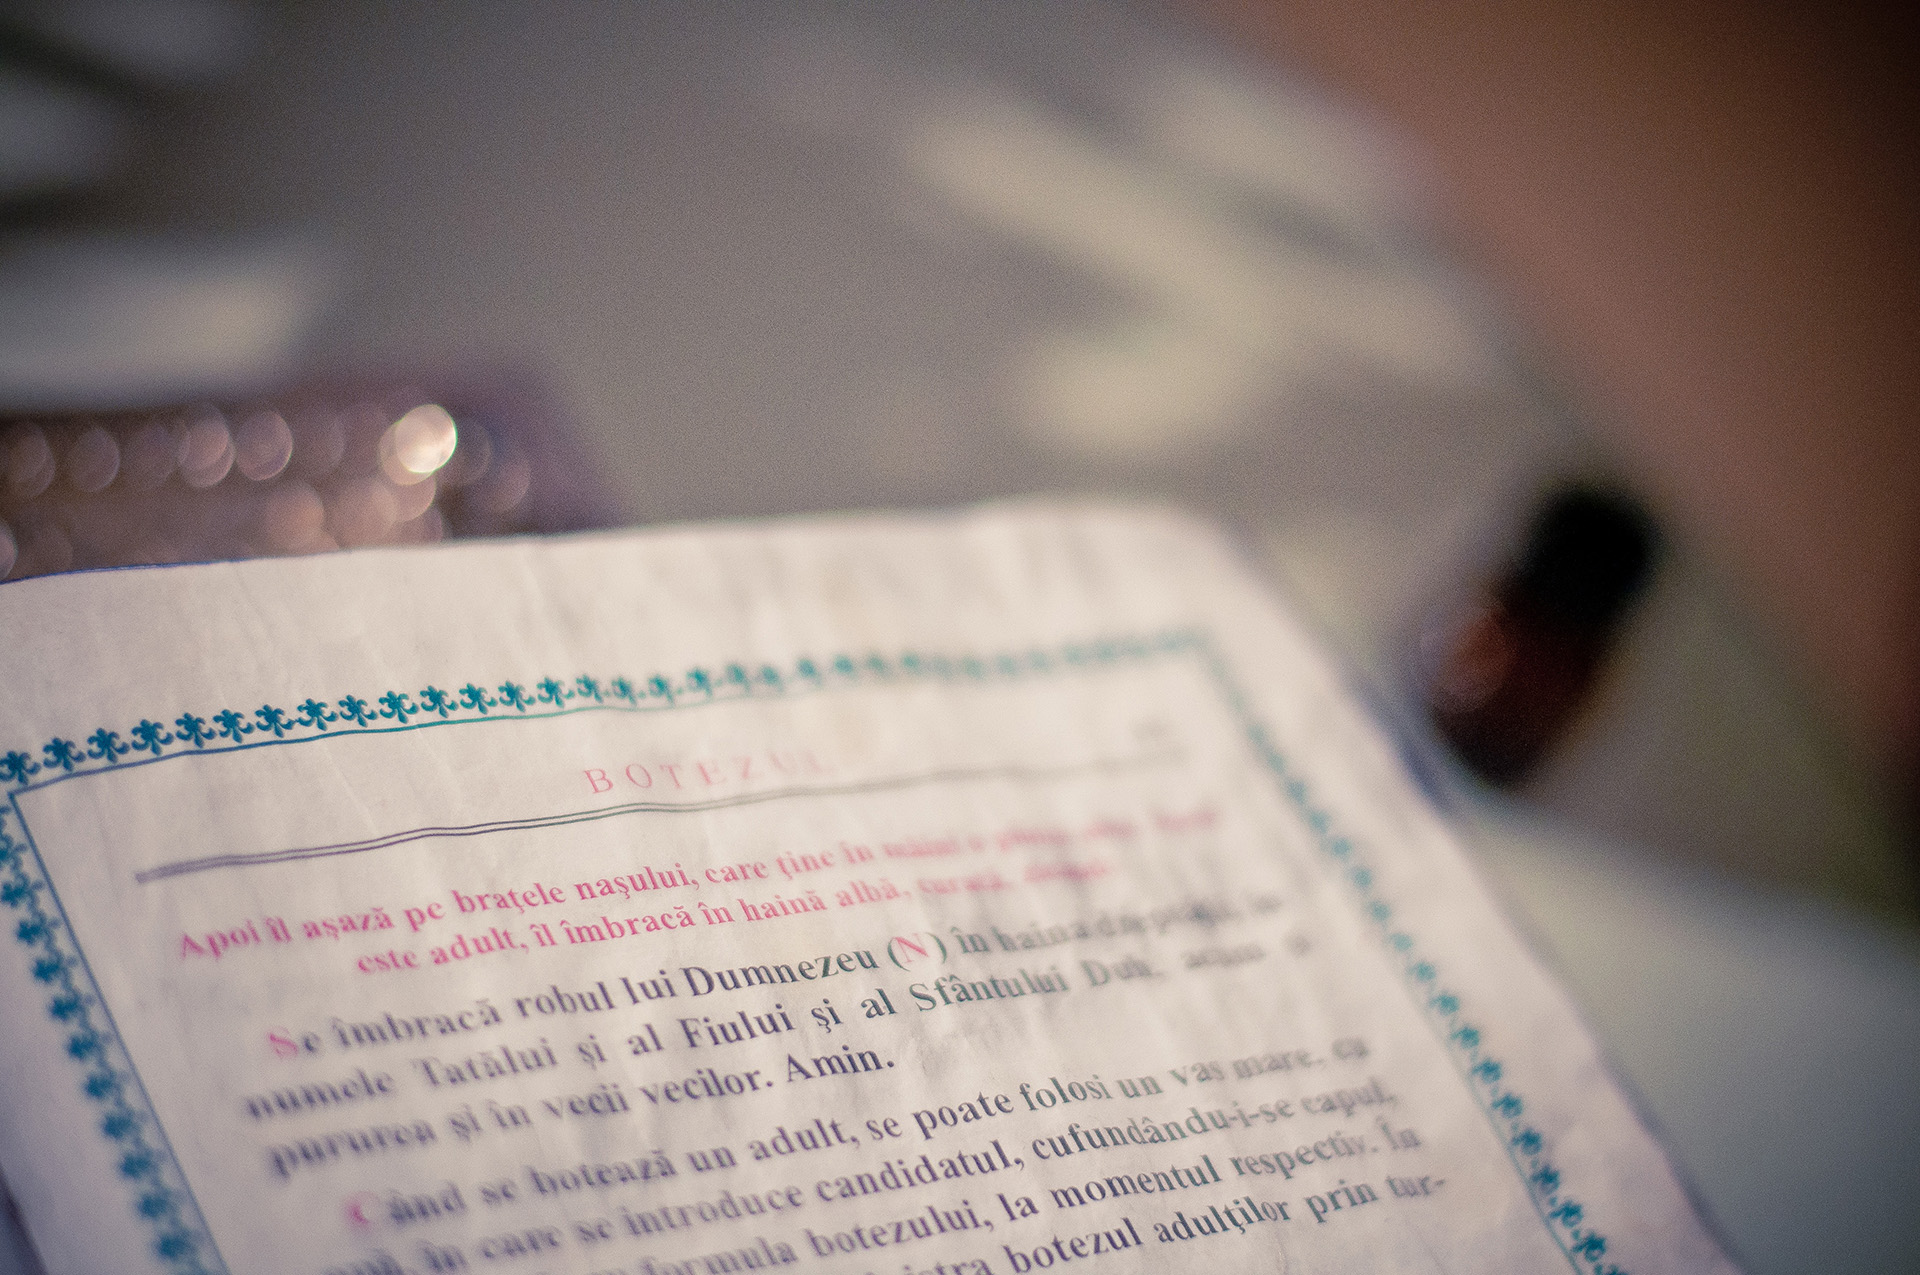 BOTEZUL
Apoi îl aşază pe braţele naşului, care ţine în
este adult, îl îmbracă în haină albă,
Se îmbracă robul lui Dumnezeu (N) în haina
numele Tatălui şi al Fiului şi al Sfântului Duh,
pururea şi în vecii vecilor. Amin.
Când se botează un adult, se poate folosi un vas mare, cu
în care se introduce candidatul, cufundându-i-se capul,
formula botezului, la momentul respectiv. În
botezul adulţilor prin tur-